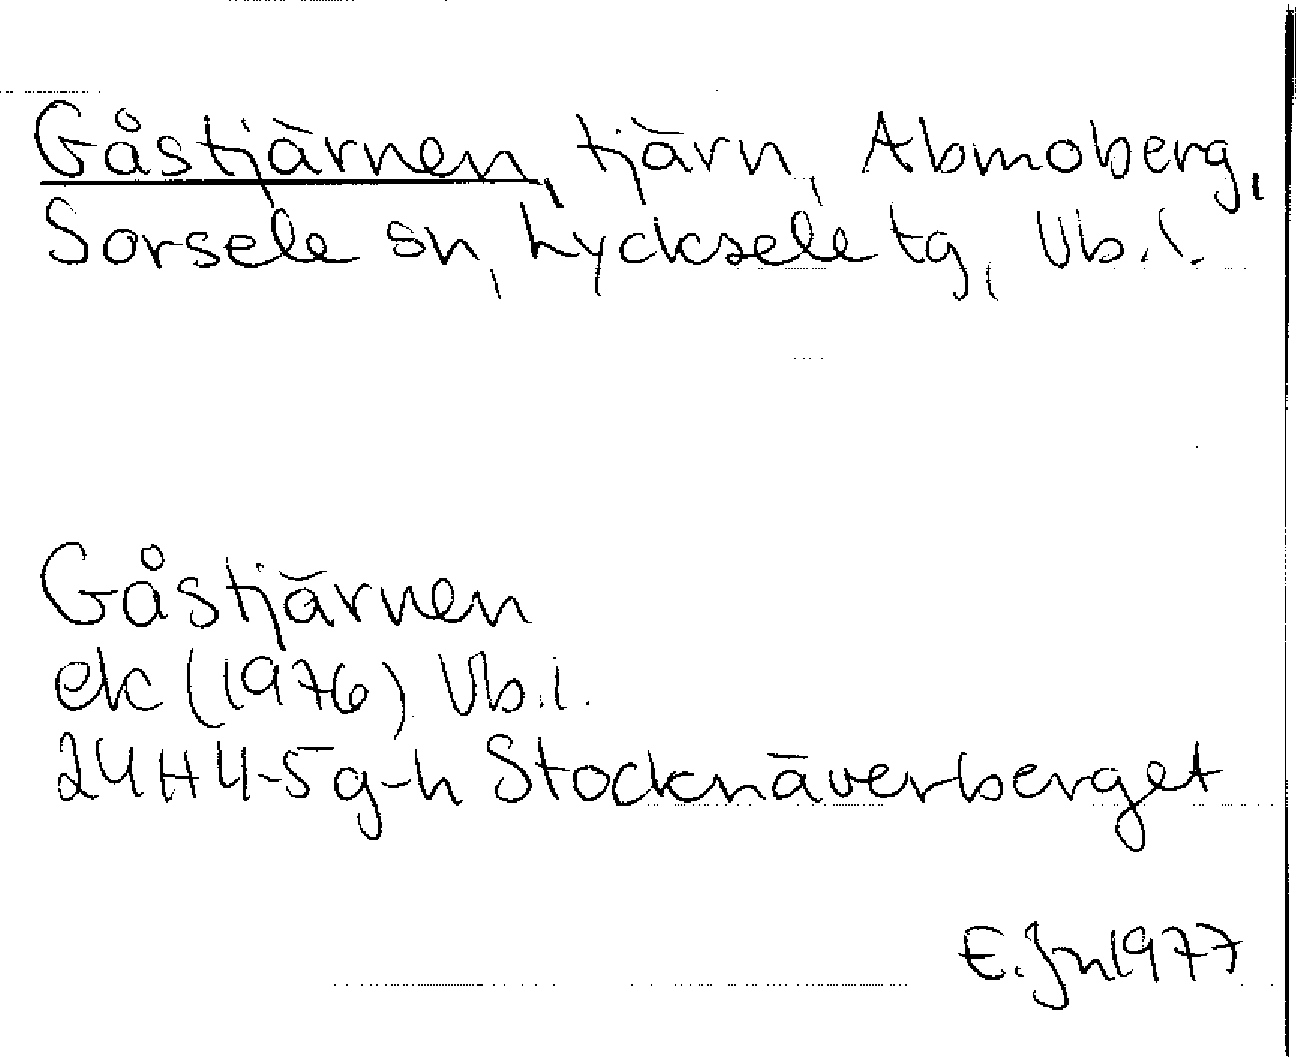 Gåstjärnen, tjärn, Abmoberg,
Sorsele sn, Lycksele tg, Vb.l.
Gåstjärnen
ek (1976) Vb.l.
24H 4-5 g-h Stocknäverberget
E. Jn 1977